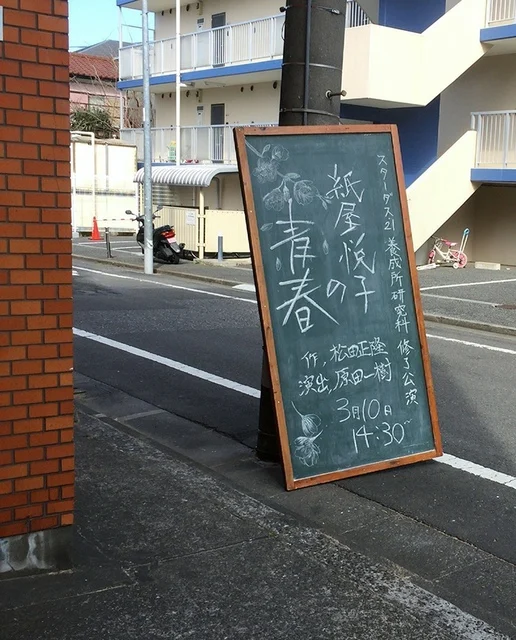 スターダス21 養成所研究科 修了公演
紙屋悦子の
青春
作、松田正隆
演出、原田一樹
3月10日
14:30〜